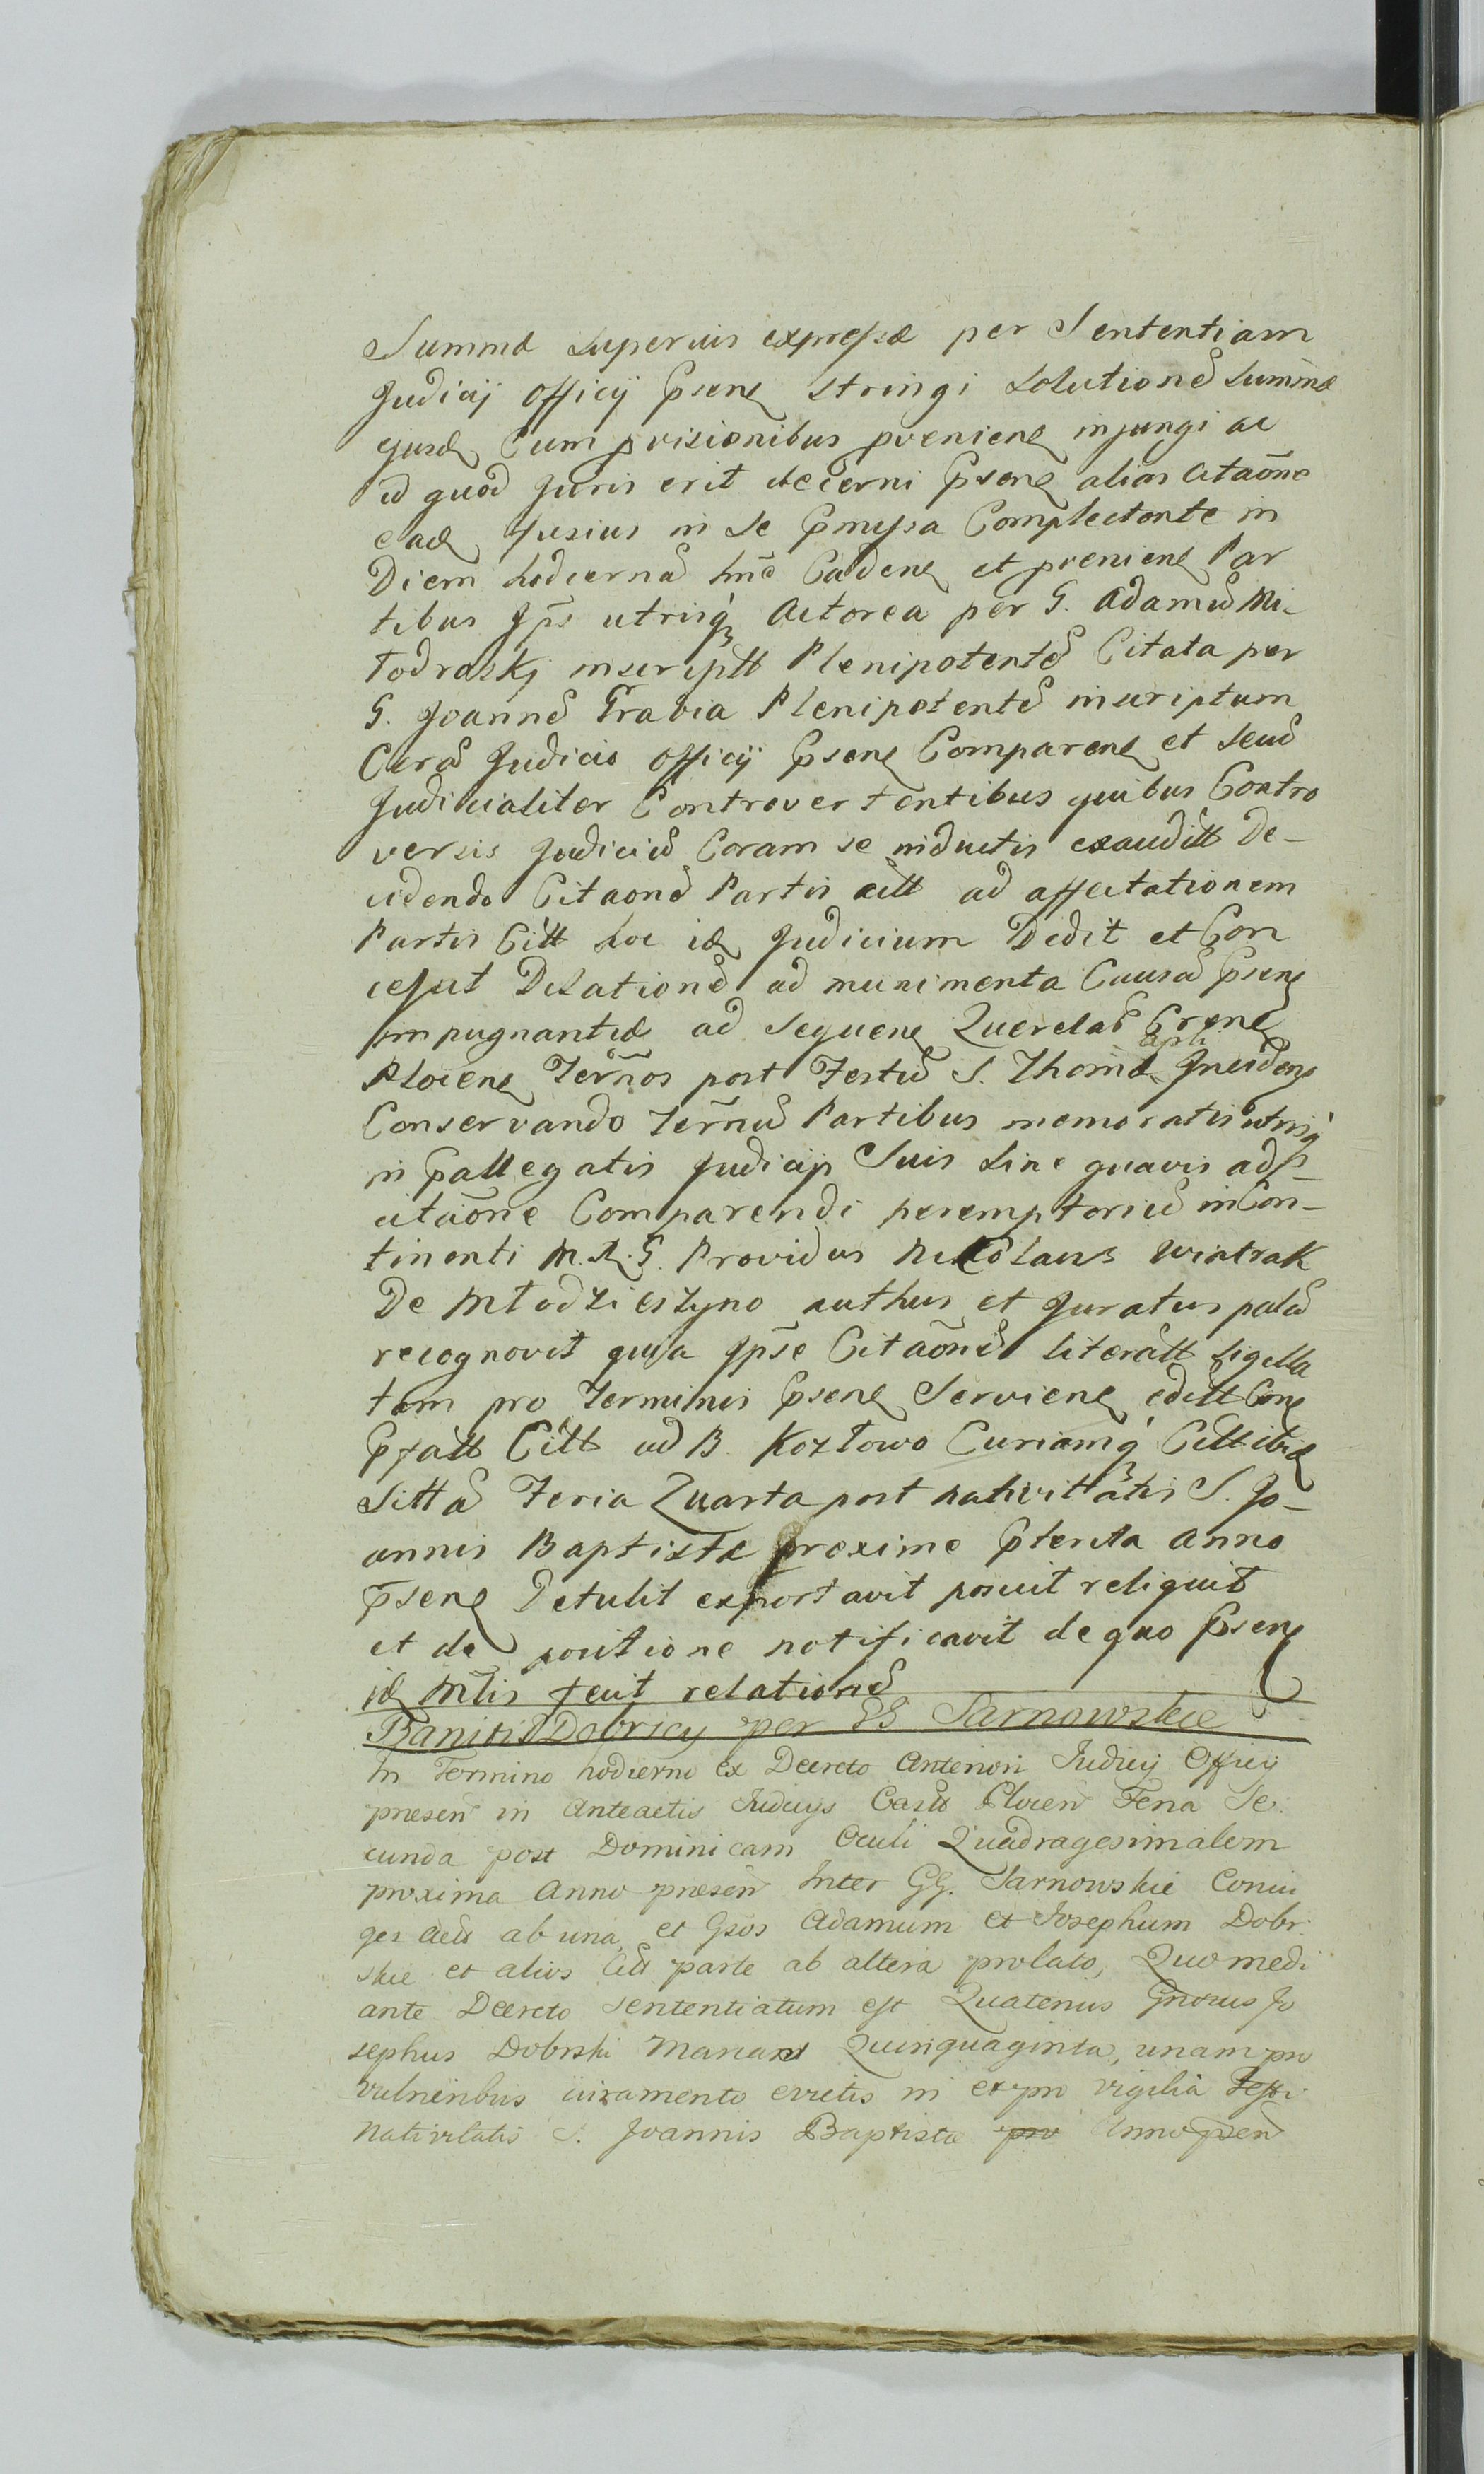 Summæ superius expressæ per Sententiam
Judicij Officij Pnsens stringi Solutionem Summæ
ejusd Cum prisionibus prveniens injungi ac
id quod Juris erit decerni Pnsens alias Citaõne
ead fusius in se Pmissa Complectente in
Diem hodiernã hnc Cadens et prveniens Par
tibus Ipis utrisq Actorea per G. Adamũ Mi-
todraskj inscriptt Plenipotentẽ Citata per
G. Joannẽ Grabia Plenipotentẽ inscriptum
Corã Judicio Officij Pnsens Comparens et seuũ
Judicialiter Controvertentibus quibus Contro
versis Judiciũ Coram se inductis exauditt De-
cidendo Citaonẽ Partis actt ad affectationem
Partis Citt hoc id Judicium Dedit et Con
cessit Dilationẽ ad munimenta Causã Pnsens
impugnantiæ ad Sequens Querelaȓ Grens
Plocens Termños post Festũ S. Thomæ Apli Incidens
Conservando Termñũ Partibus memoratis utrisq
in Pallegatis Judicijs Suis Sine quavis ads
citãone Comparendi peremptoriũ in Con-
tinenti M. R. G. Providus Nicolaus Wiatrak
De Młodzieszyno authus et Juratus palã
recognovit quja Ipse Citaõnẽ literatt sigilla
tam pro Terminis Pnsens Serviens editt Cons
Pfatt Citt ad B. Kozłowo Curiamq Citt ibid
Sittã Feria Quarta post nativittatis S. Jo-
annis Baptistæ proxime Pterita anno
Psens Detulit exportavit posuit reliquit
et de positione notificavit de quo Psens
id Mtis fecit relationẽ
Banitio Dobrscy per GG Sarnowskie
In Termino hodierno ex Decreto Anteriori Judicij Officij
presen in Anteactis Judicijs Castr Plocen Feria Se
cunda post Dominicam Oculi Quadragesimalem
proxima Anno presen Inter GG. Sarnowskie Coniu
ges Actt ab una, et Gsos Adamum et Josephum Dobr
skie et alios Citt parte ab altera prolato, Quo medi
ante Decreto Sententiatum est Quatenus Gnosus Jo
sephus Dobrski Marcas Quinquaginta, unam pro
vulneribus iuramento evictis in et pro vigilia Festi
Nativitatis S. Joannis Baptistæ pro Anno psen